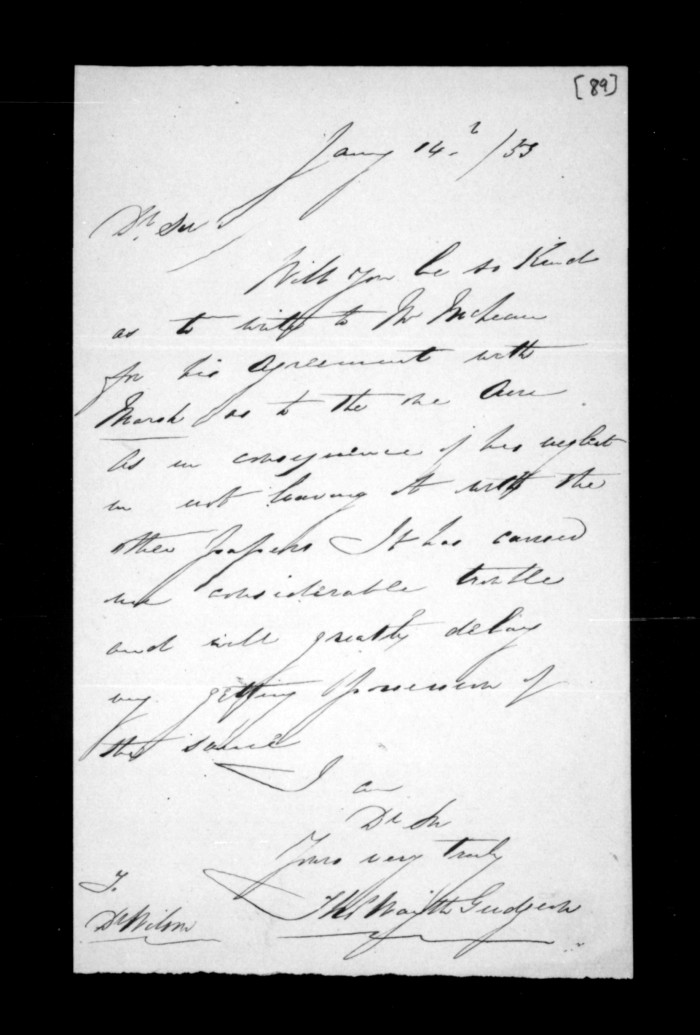 [89]
Jany 14. /53
Dr Sir
Will you be so kind
as to write to Mr McLean
for his agreement with
Marsh as to the one Acre
As in consequence of his neglect
in not leaving it with the
other papers It has caused
me considerable trouble
and will greatly delay
my getting possession of
the same
I am
Dr Sir
Yours very truly
Thos Waith Gudgeon
To
Dr Wilson